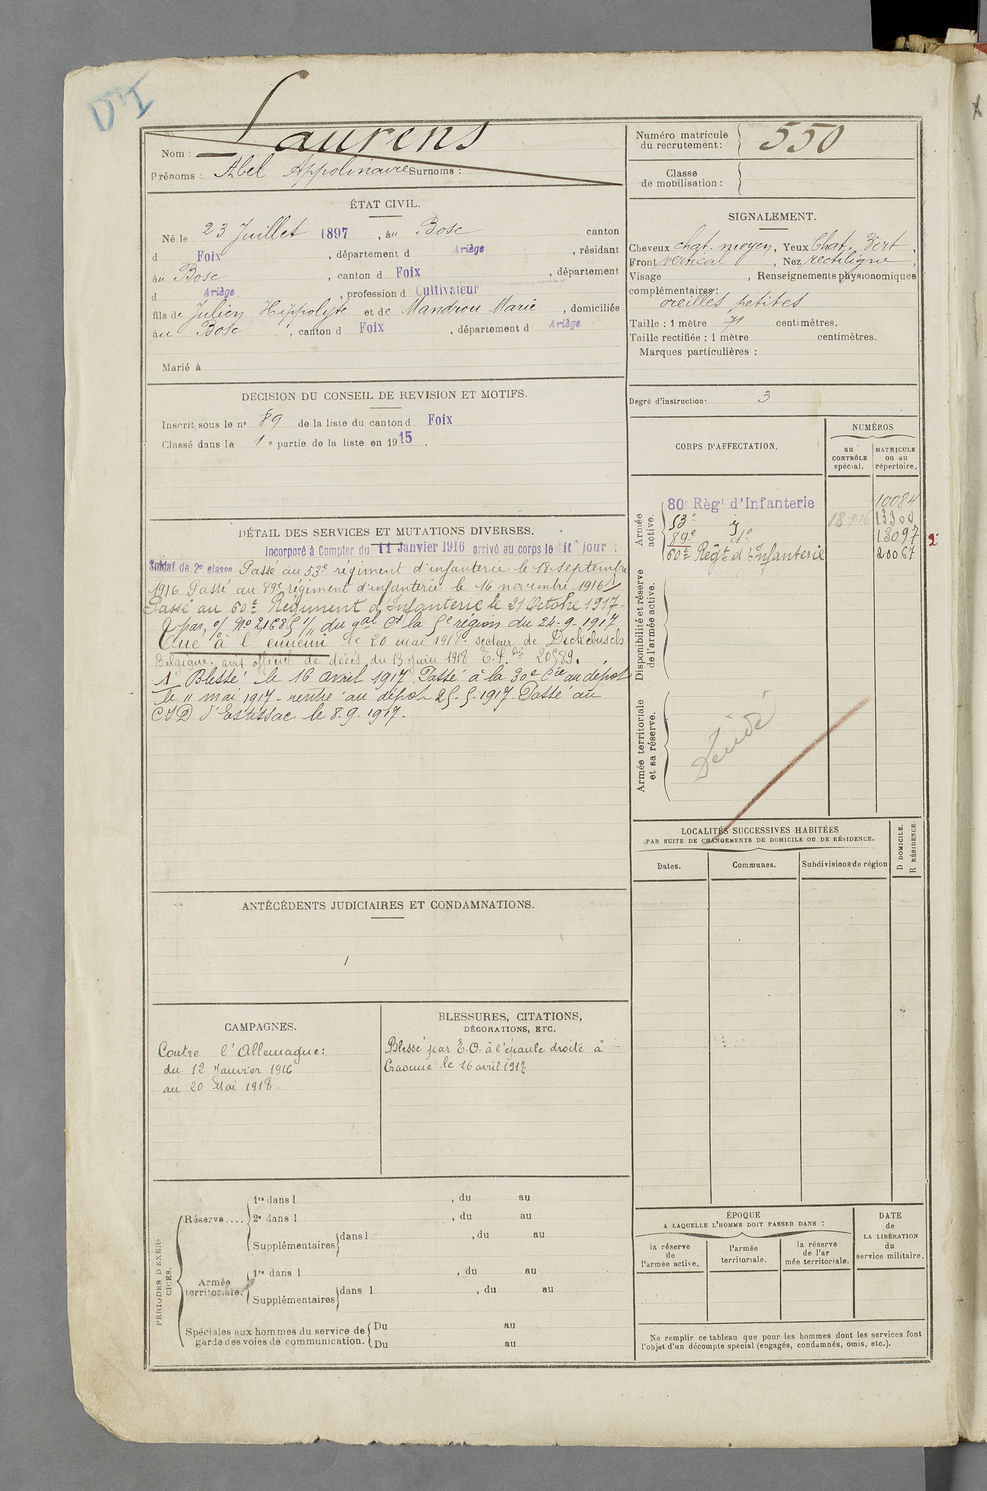 D I
Nom : Laurens
Prénoms : Abel Appolinaire Surnoms :
Numéro matricule
du recrutement : 550
Classe
de mobilisation :
ÉTAT CIVIL.
Né le 23 Juillet 1897, au Bosc canton
d Foix, département d Ariège, résidant
au Bosc, canton d Foix, département
d Ariège, profession d Cultivateur
fils de Julien Hippolyte et de Mandrou Marie, domiciliés
au Bosc, canton d Foix, département d Ariège
Marié à
SIGNALEMENT.
Cheveux chat. moyen, Yeux Chat. Vert,
Front vertical, Nez rectiligne,
Visage , Renseignements physionomiques
complémentaires :
oreilles petites
Taille : 1 mètre 71 centimètres.
Taille rectifiée : 1 mètre centimètres.
Marques particulières :
Degré d'instruction : 3
DÉCISION DU CONSEIL DE REVISION ET MOTIFS.
Inscrit sous le n° 89 de la liste du canton d Foix
Classé dans la 1e partie de la liste en 1915.
CORPS D'AFFECTATION.
NUMÉROS
au
CONTRÔLE
spécial.
MATRICULE
ou au
répertoire.
Armée
active.
80e Régt d'Infanterie 10084
53e do 18.9.16 13300
89e do 13097 2
60e Régt d'Infanterie 20067
Disponibilité et réserve
de l'armée active.
Armée territoriale
et sa réserve.
Décédé
DÉTAIL DES SERVICES ET MUTATIONS DIVERSES.
Incorporé à Compter du 11 Janvier 1916 arrivé au corps le dit jour :
Soldat de 2e classe Passé au 53e régiment d'infanterie le 18 Septembre
1916 Passé au 89e régiment d'infanterie le 16 novembre 1916
Passé au 60e Régiment d'Infanterie le 21 Octobre 1917
par, o/ No 21685 1/11 du gal Ct la 5e région du 24-9-1917
Tué à l'ennemi le 20 mai 1918 secteur de Dickebusch
Belgique. avis officiel de décès du 13 juin 1918 20589.
Blessé le 16 avril 1917 Passé à la 30e Cie au dépôt
le 11 mai 1917 - rentré au dépôt 25-5-1917 Passé au
CID d'Estissac le 8.9.1917.
LOCALITÉS SUCCESSIVES HABITÉES
PAR SUITE DE CHANGEMENTS DE DOMICILE OU DE RÉSIDENCE.
Dates.
Communes.
Subdivisions de région
D DOMICILE.
R RÉSIDENCE.
ANTÉCÉDENTS JUDICIAIRES ET CONDAMNATIONS.
CAMPAGNES.
Contre l'Allemagne :
du 12 Janvier 1916
au 20 Mai 1918
BLESSURES, CITATIONS,
DÉCORATIONS, ETC.
Blessé par E.O. à l'épaule droite à
Craonne le 16 avril 1917
PÉRIODES D'EXER-
CICES.
Réserve....
1re dans l , du au
2e dans l , du au
Supplémentaires dans l , du au
Armée
territoriale.
1re dans l , du au
Supplémentaires dans l , du au
Spéciales aux hommes du service de
garde des voies de communication.
Du au
Du au
ÉPOQUE
A LAQUELLE L'HOMME DOIT PASSER DANS :
la réserve
de
l'armée active.
l'armée
territoriale.
la réserve
de l'ar
mée territoriale.
DATE
de
LA LIBÉRATION
du
service militaire.
Ne remplir ce tableau que pour les hommes dont les services font
l'objet d'un décompte spécial (engagés, condamnés, omis, etc.).